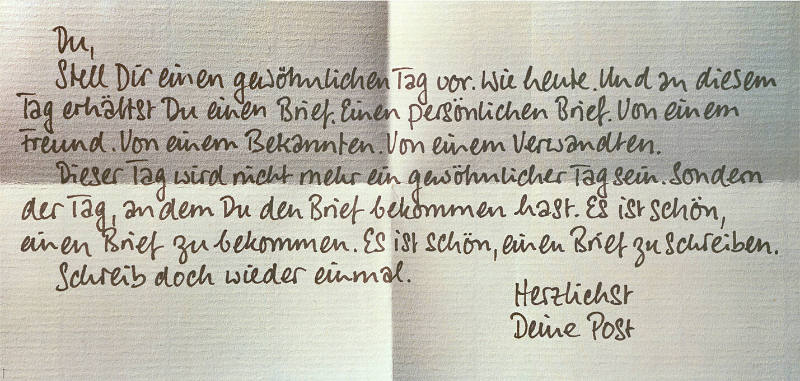 Du,
Stell Dir einen gewöhnlichen Tag vor. Wie heute. Und an diesem
Tag erhältst Du einen Brief. Einen persönlichen Brief. Von einem
Freund. Von einem Bekannten. Von einem Verwandten.
Dieser Tag wird nicht mehr ein gewöhnlicher Tag sein. Sondern
der Tag, an dem Du den Brief bekommen hast. Es ist schön,
einen Brief zu bekommen. Es ist schön, einen Brief zu schreiben.
Schreib doch wieder einmal.
Herzlichst
Deine Post